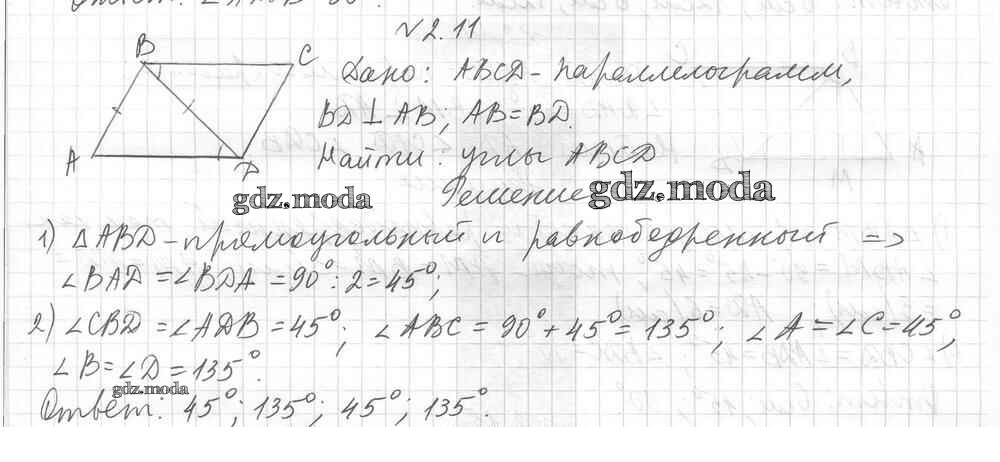 №2.11
B C
A D
Дано: ABCD - параллелограмм,
BD ⊥ AB, AB = BD.
Найти: углы ABCD
Решение
gdz.moda gdz.moda
1) △ABD - прямоугольный и равнобедренный =>
∠BAD = ∠BDA = 90°: 2 = 45°;
2) ∠CBD = ∠ADB = 45°; ∠ABC = 90° + 45° = 135°; ∠A = ∠C = 45°,
∠B = ∠D = 135°.
gdz.moda
Ответ: 45°; 135°; 45°; 135°.